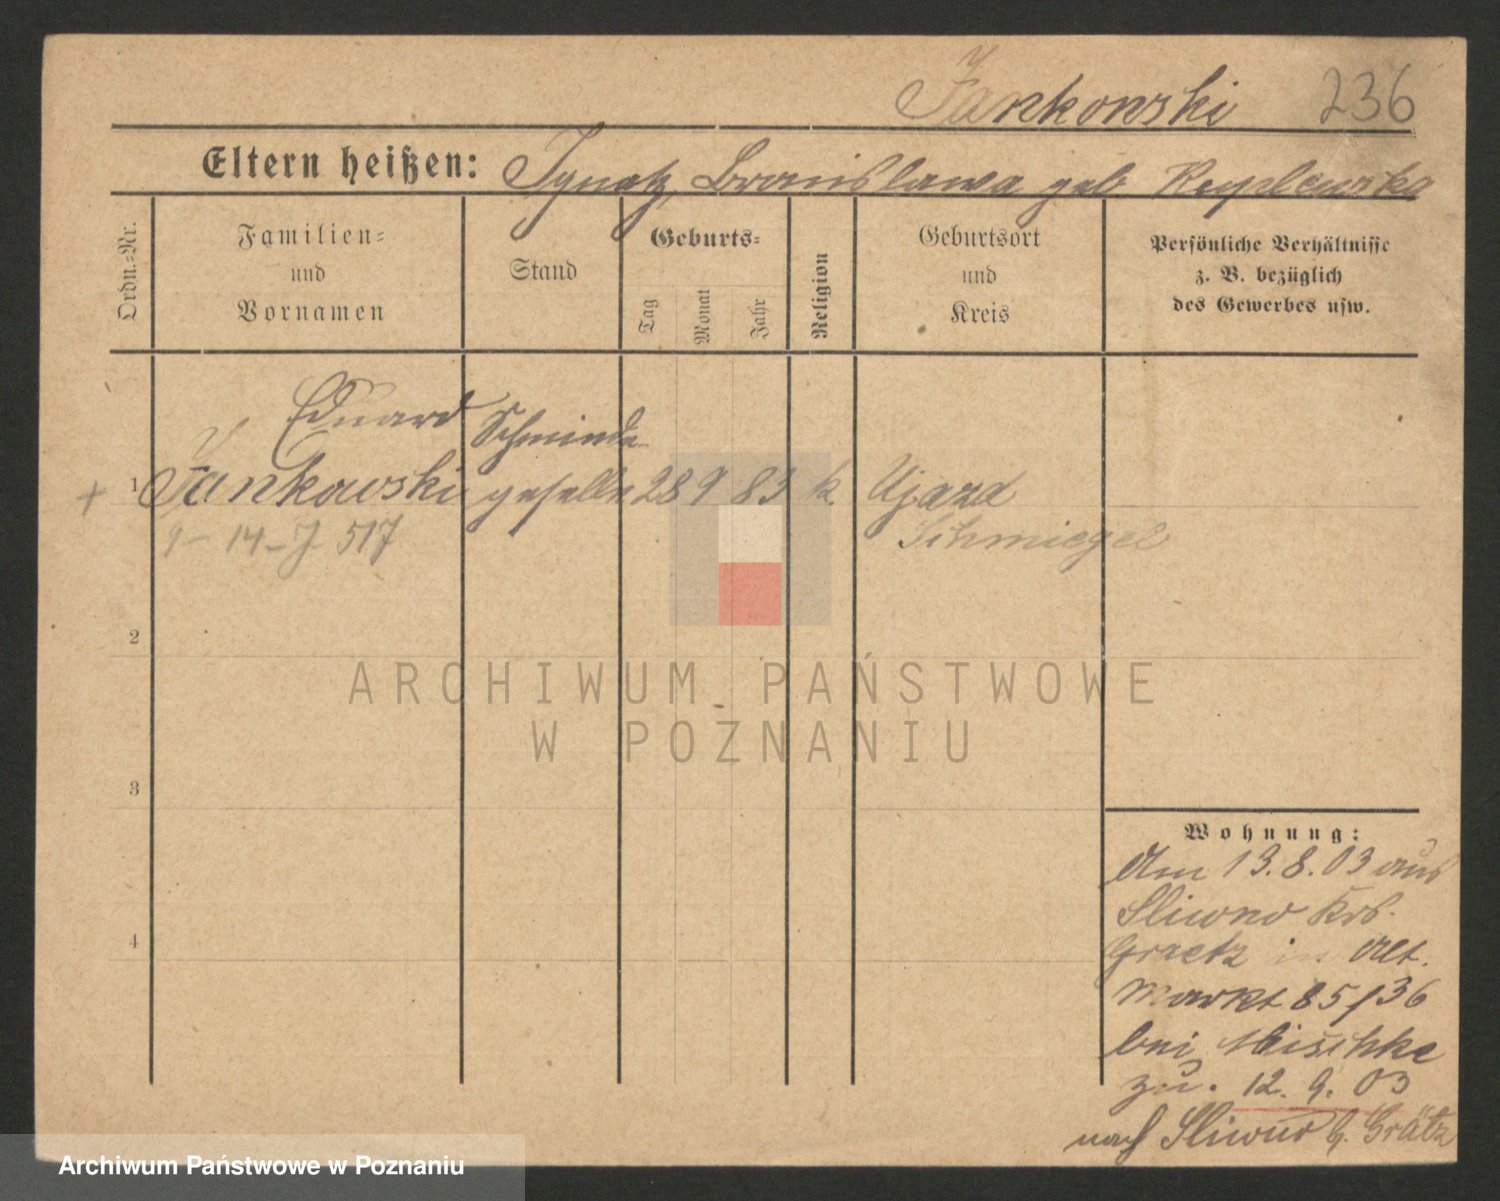 Jankowski 236
Eltern heißen: Ignatz, Bronislawa geb
Ordn.=Nr.
Familien=
und
Vornamen
Stand
Geburts=
Tag
Monat
Jahr
Religion
Geburtsort
und
Kreis
Persönliche Verhältnisse
z. B. bezüglich
des Gewerbes usw.
Eduard Schmiede
+ 1 Jankowski geselle 28 9 83 k Ujazd
9-14-J 517 Schmiegel
2
ARCHIWUM PAŃSTWOWE
W POZNANIU
3
Wohnung:
Am 13.8.03 aus
Sliwno Krs.
Graetz in Alt.
Markt 85/36
bei Mischke
zu. 12. 9. 03
nach Sliwno b. Grätz
4
Archiwum Państwowe w Poznaniu